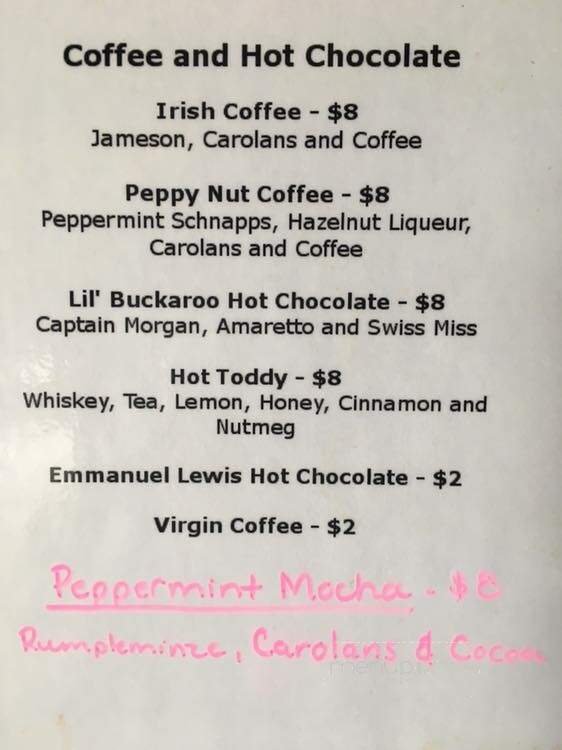 Coffee and Hot Chocolate
Irish Coffee - $8
Jameson, Carolans and Coffee
Peppy Nut Coffee - $8
Peppermint Schnapps, Hazelnut Liqueur,
Carolans and Coffee
Lil' Buckaroo Hot Chocolate - $8
Captain Morgan, Amaretto and Swiss Miss
Hot Toddy - $8
Whiskey, Tea, Lemon, Honey, Cinnamon and
Nutmeg
Emmanuel Lewis Hot Chocolate - $2
Virgin Coffee - $2
Peppermint Mocha - $8
Rumpleminze, Carolans & Cocoa